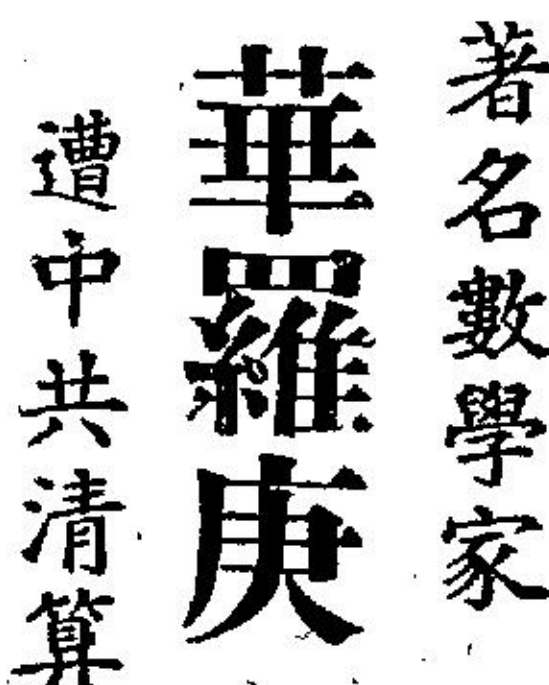 著名數學家
華羅庚
遭中共清算